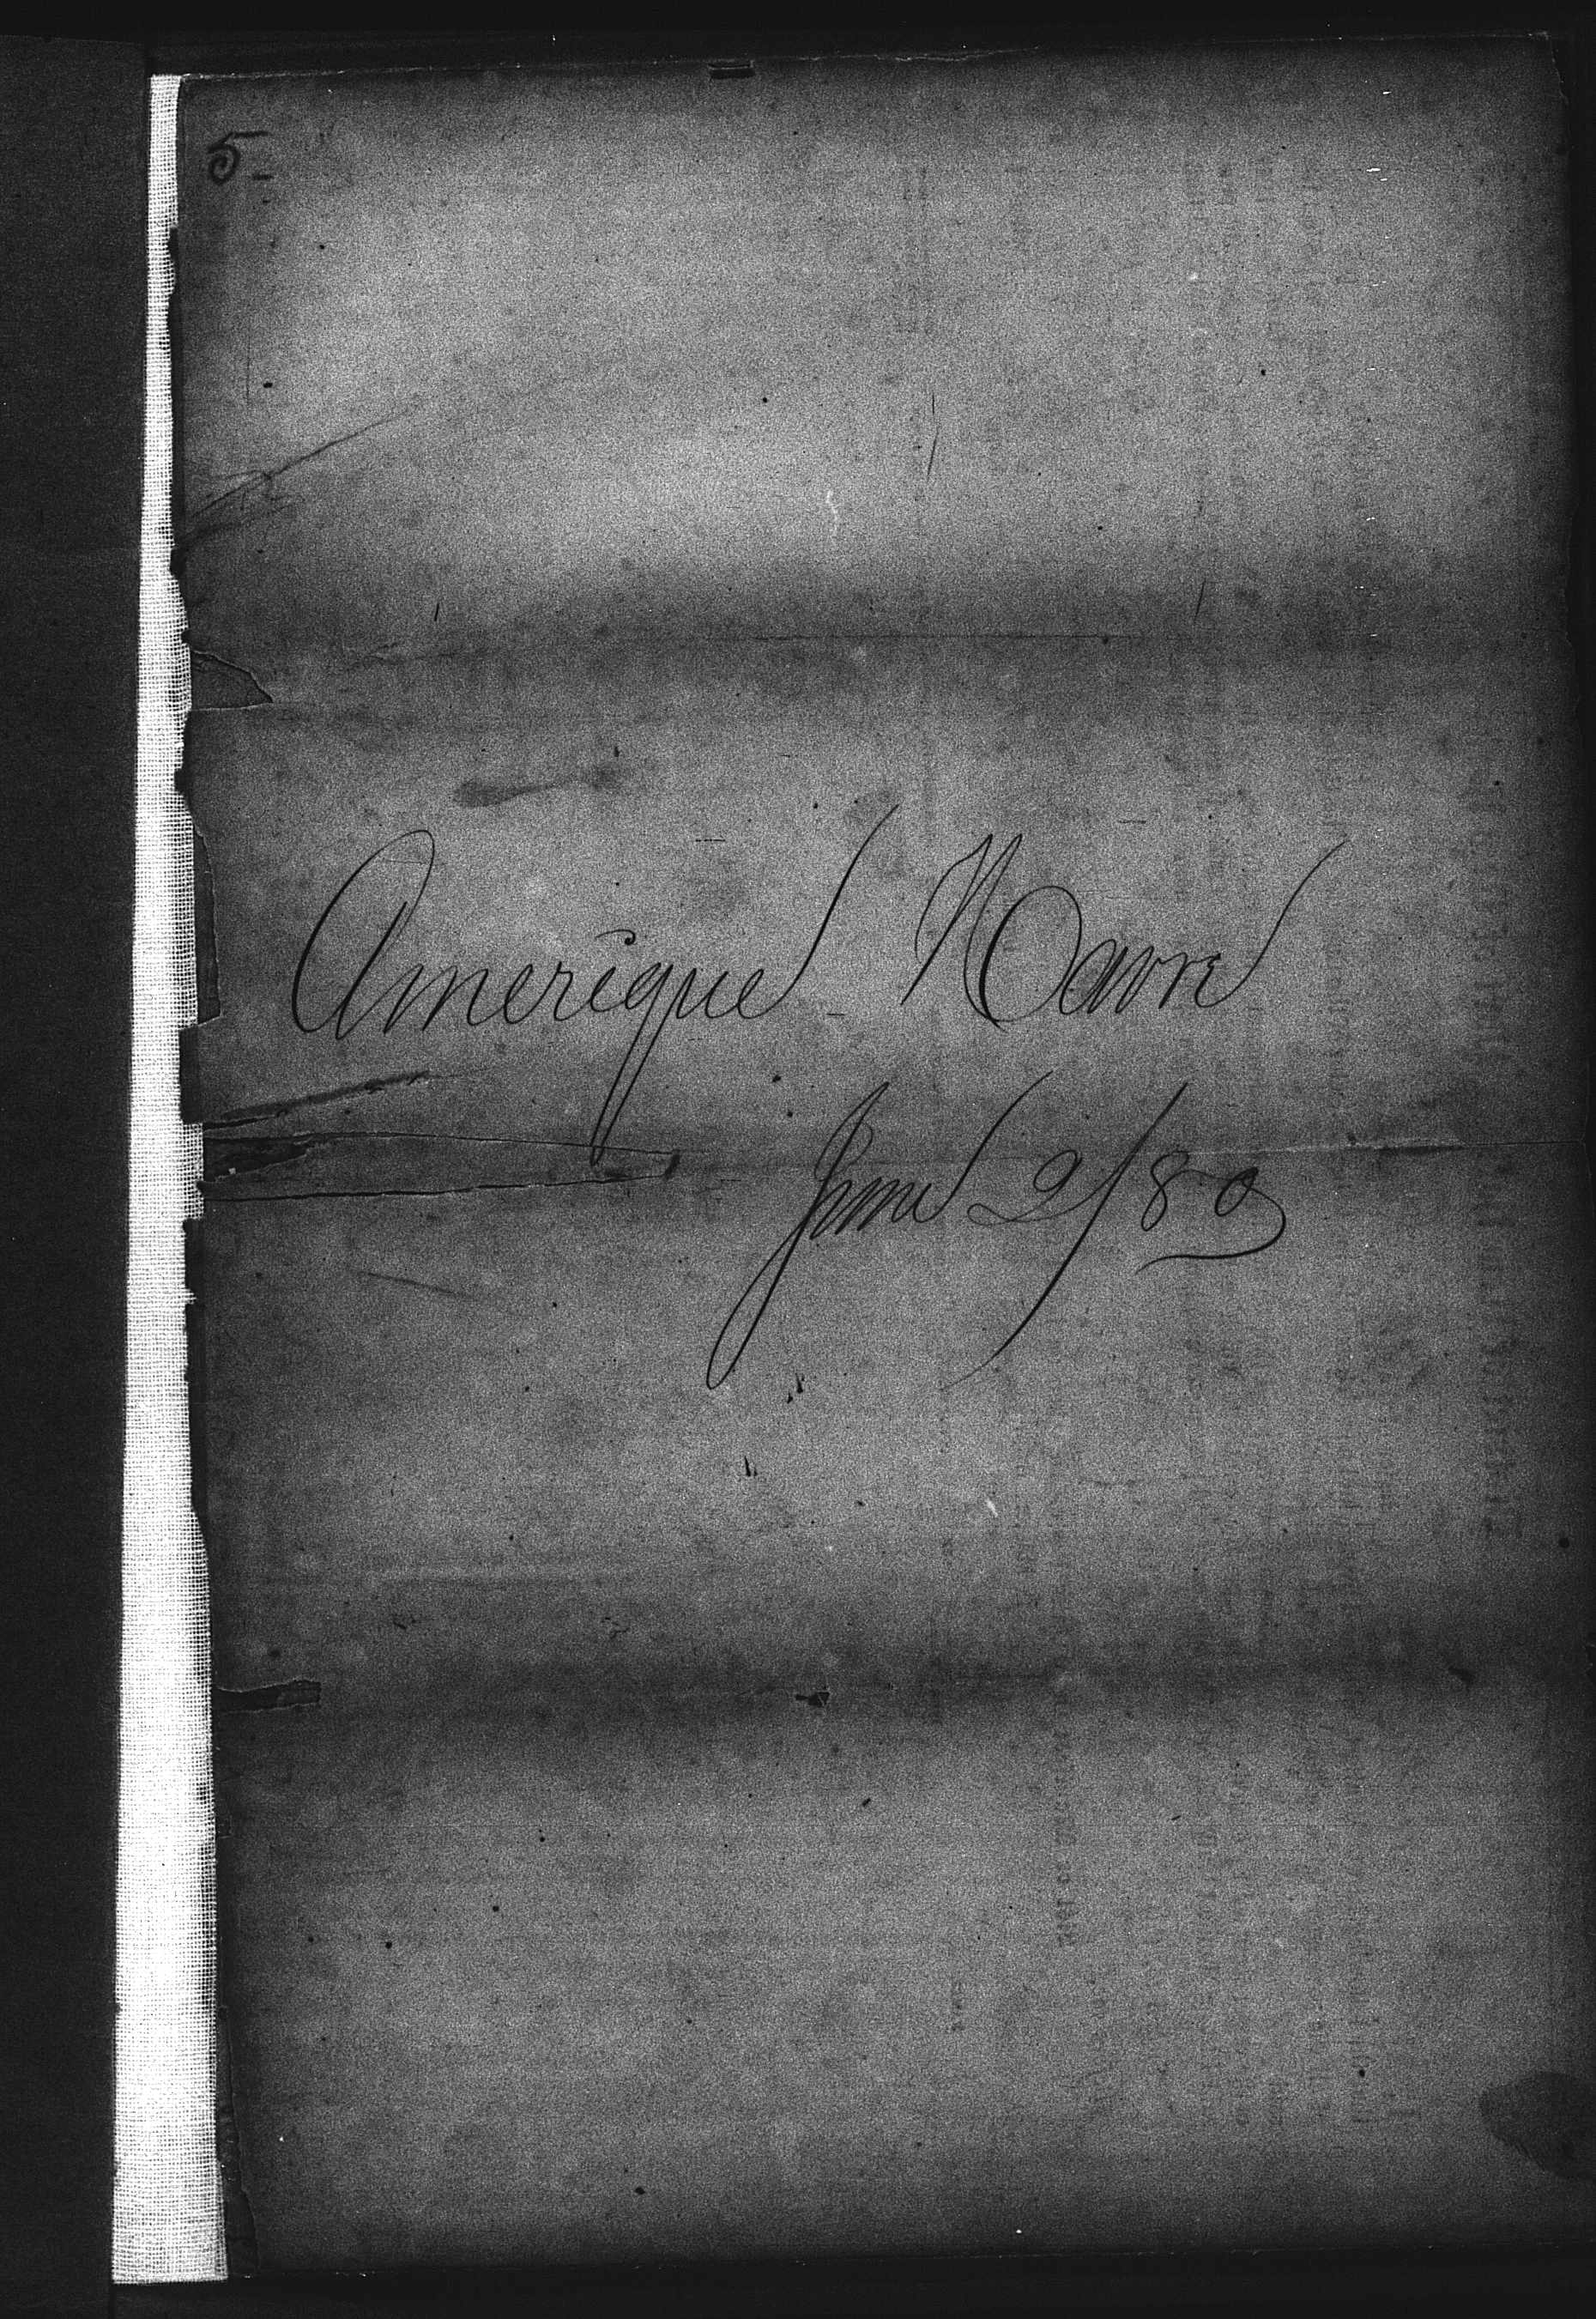 5-
Amerique - Havre
June 2/80